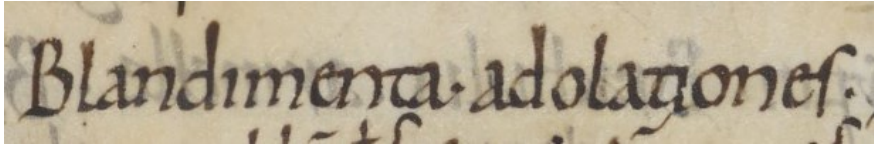 Blandimenta· adolationes·